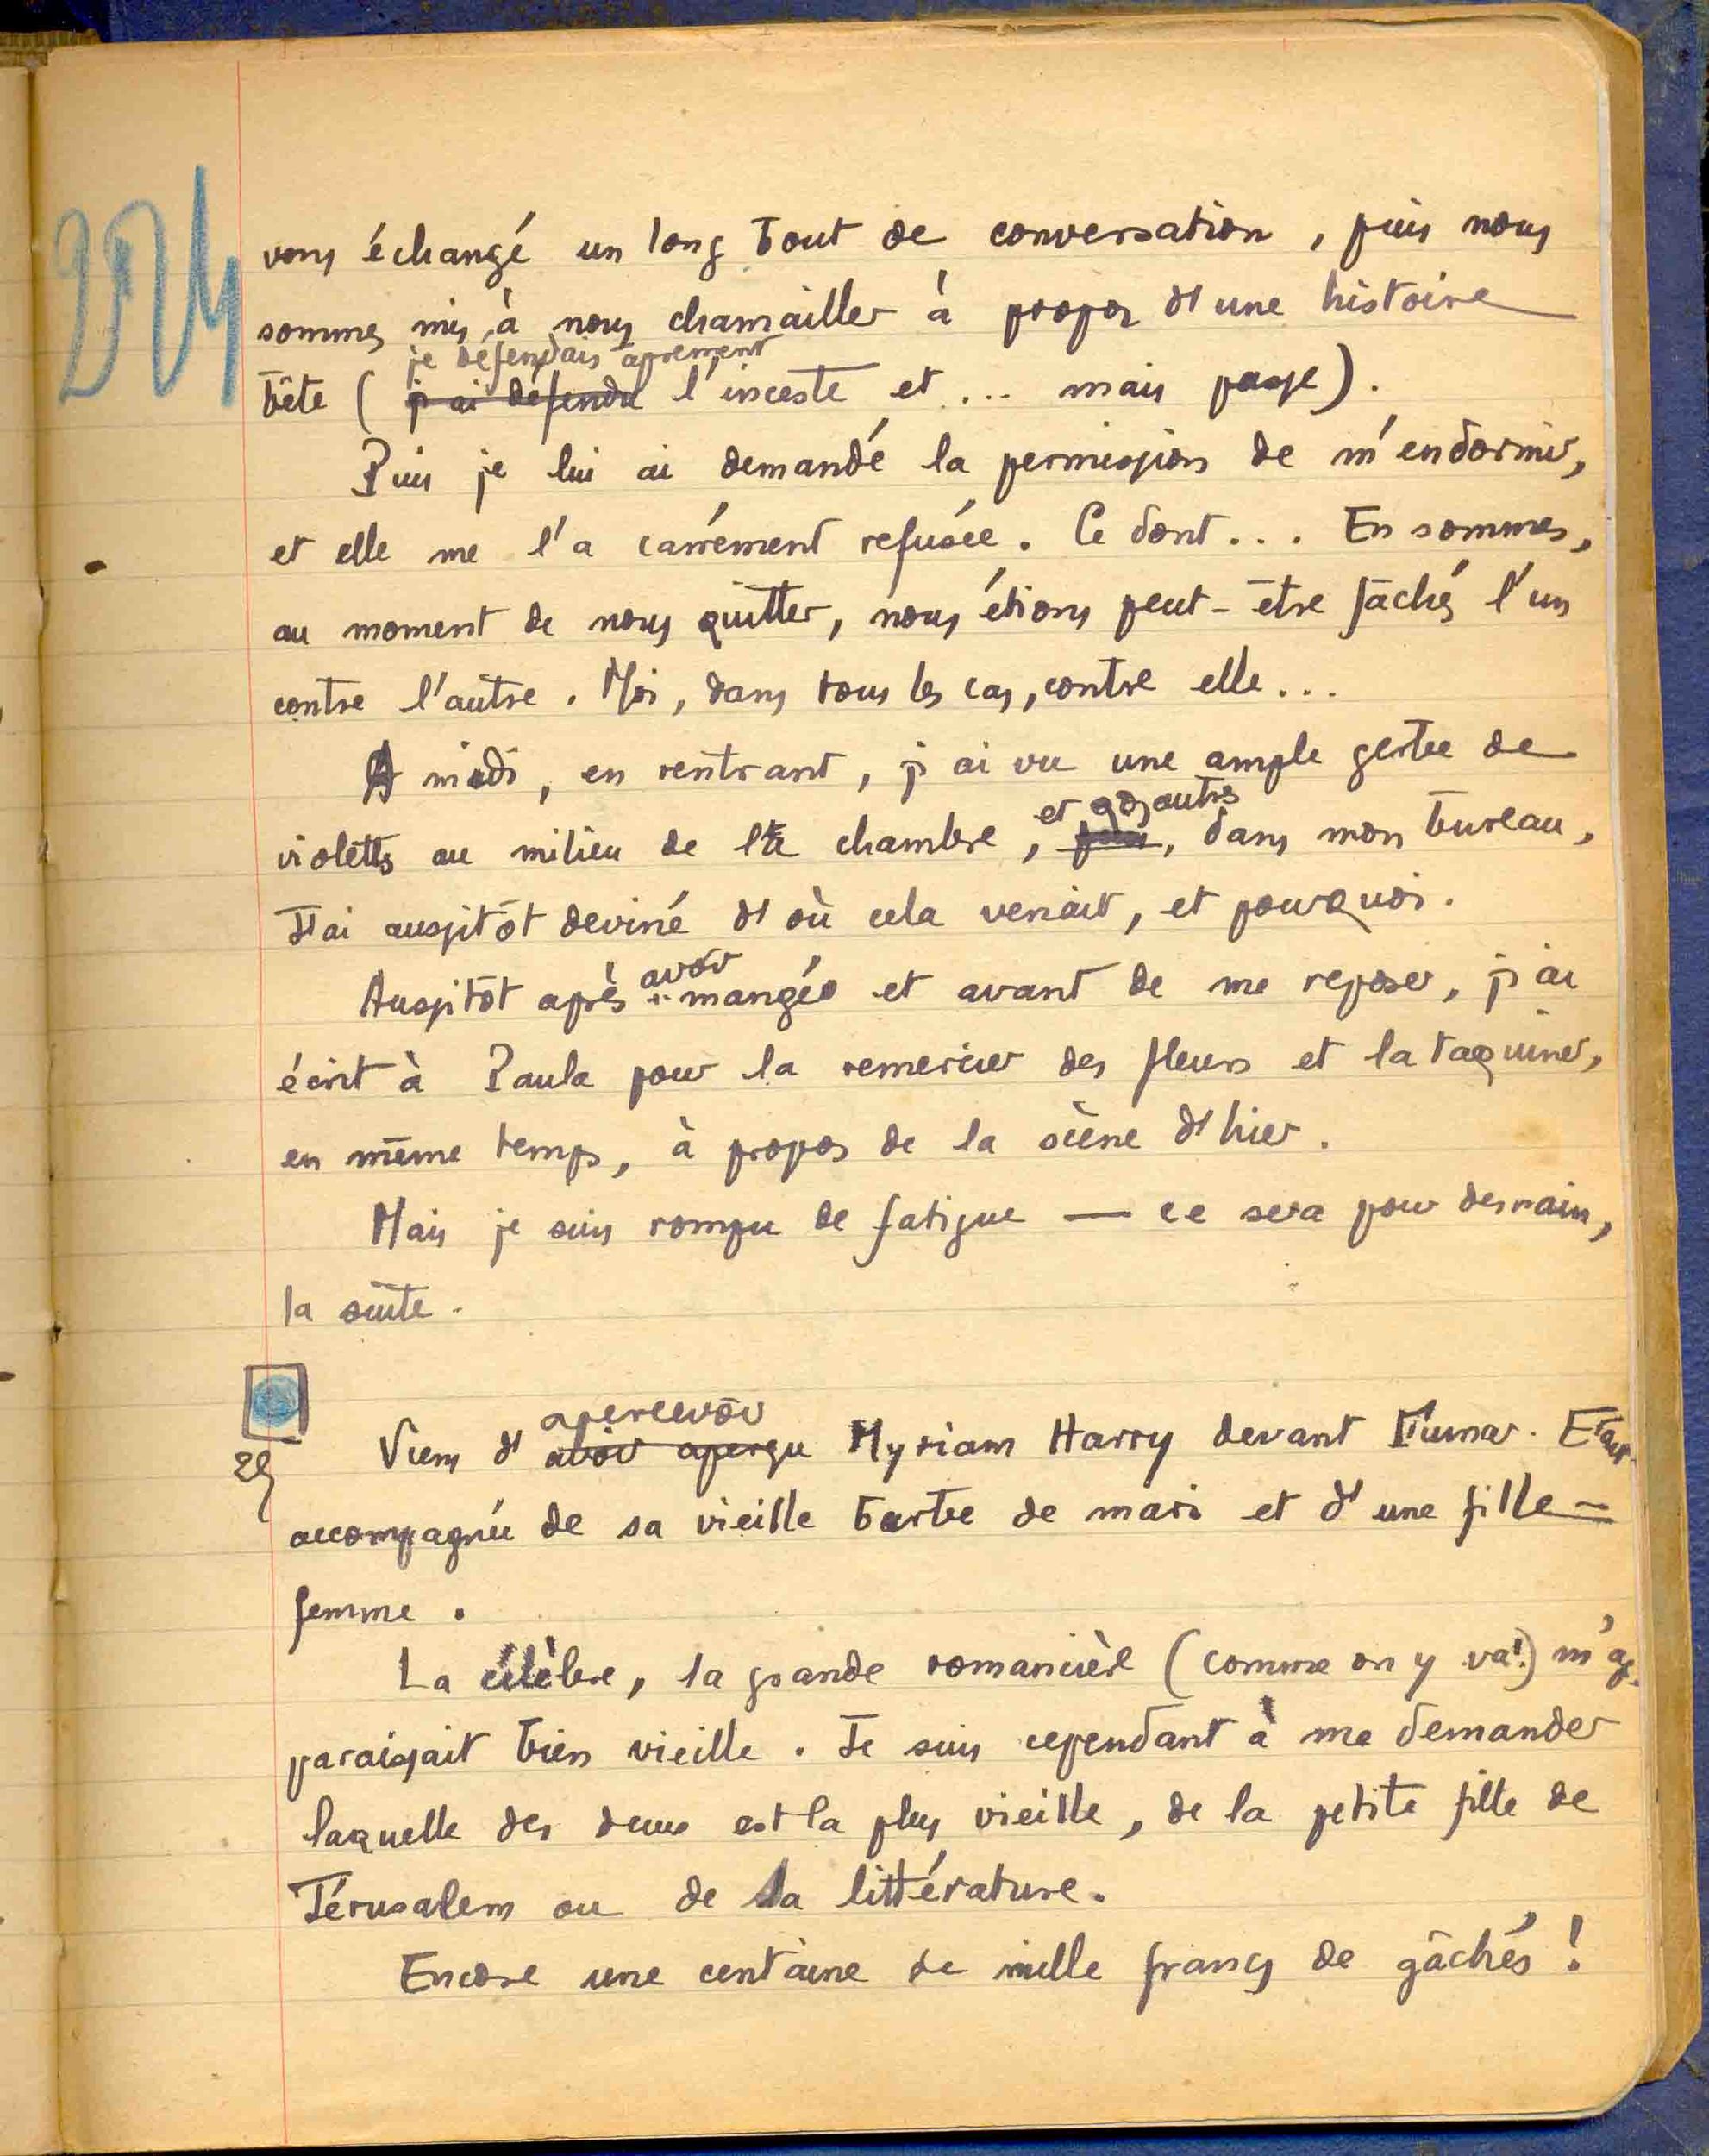 224
vons échangé un long bout de conversation, puis nous
sommes mis à nous chamailler à propos d'une histoire
je défendais âprement
bête (j'ai défendu l'inceste et ... mais passe).
Puis je lui ai demandé la permission de m'endormir,
et elle me l'a carrément refusée. Ce dont... En sommes,
au moment de nous quitter, nous étions peut-être fâchés l'un
contre l'autre. Moi, dans tous les cas, contre elle...
A midi, en rentrant, j'ai vu une ample gerbe de
et qqs autres
violettes au milieu de la chambre, , dans mon bureau,
J'ai aussitôt deviné d'où cela venait, et pourquoi.
avoir
Aussitôt après mangé et avant de me reposer, j'ai
écrit à Paula pour la remercier des fleurs et la taquiner,
en même temps, à propos de la scène d'hier.
Mais je suis rompu de fatigue — ce sera pour demain,
la suite.
apercevoir
25 Viens d'avoir aperçu Myriam Harry devant Tumar. Etait
accompagnée de sa vieille barbe de mari et d'une fille-
femme.
La célèbre, la grande romancière (comme on y va!) m'ap-
paraissait bien vieille. Je suis cependant à me demander
laquelle des deux est la plus vieille, de la petite fille de
Jérusalem ou de la littérature.
Encore une centaine de mille francs de gâchés!